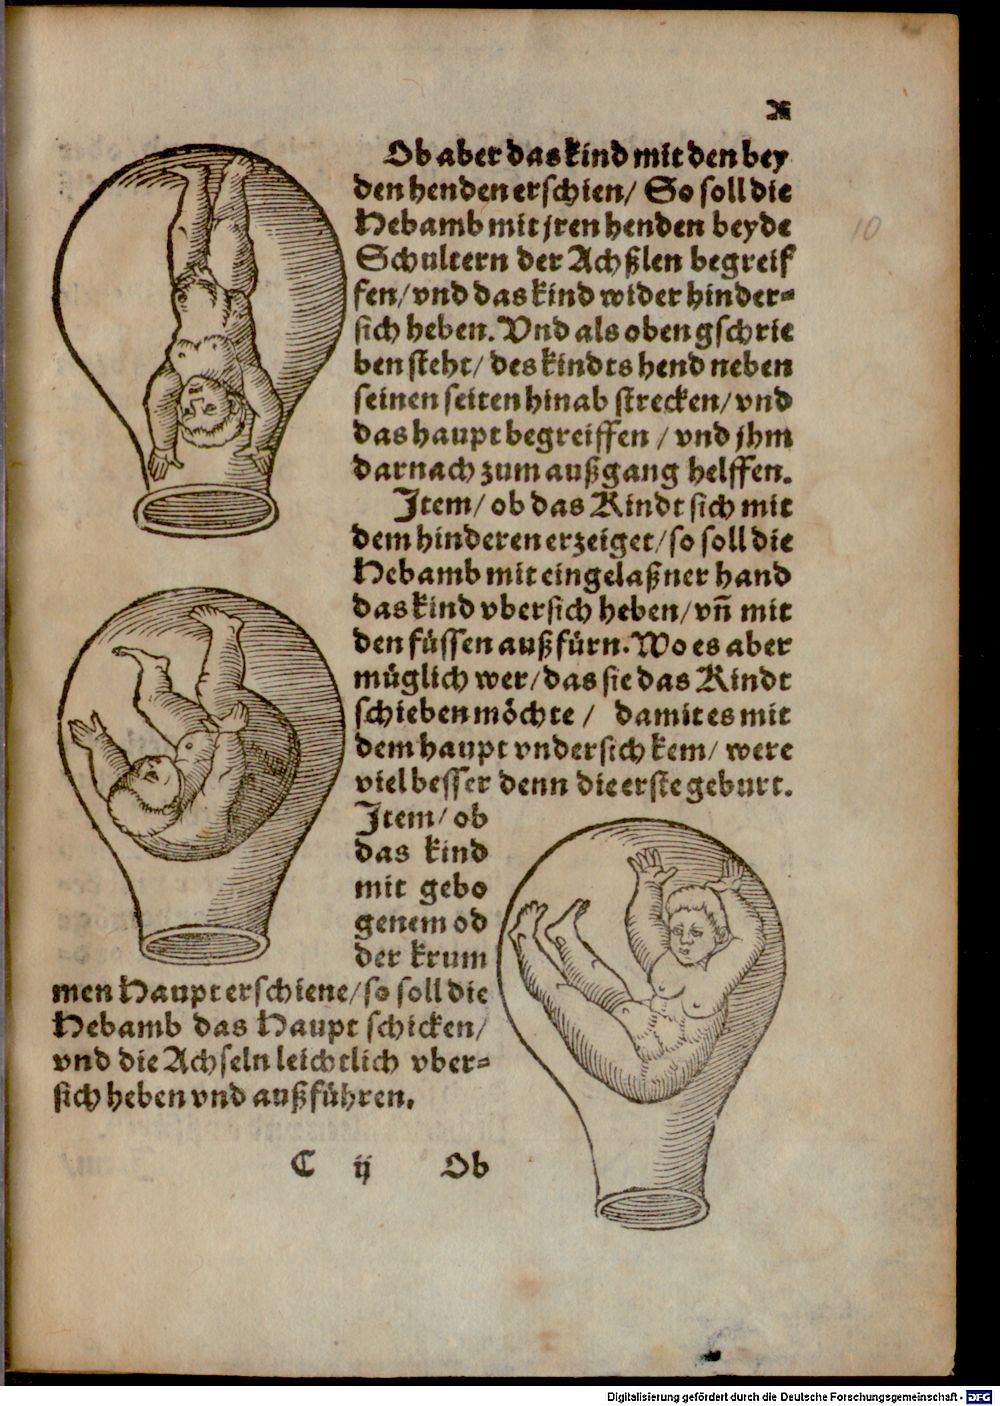 X
10
Ob aber das kind mit den bey
den henden erschien/ So soll die
Hebamb mit jren henden beyde
Schultern der Achßlen begreif
fen/ vnd das kind wider hinder=
sich heben. Vnd als oben gschrie
ben steht/ des kindts hend neben
seinen seiten hinab strecken/ vnd
das haupt begreiffen / vnd jhm
darnach zum außgang helffen.
Item/ ob das Kindt sich mit
dem hinderen erzeiget/ so soll die
Hebamb mit eingelaßner hand
das kind vbersich heben/ vñ mit
den füssen außfürn. Wo es aber
müglich wer/ das sie das Kindt
schieben möchte / damit es mit
dem haupt vndersich kem/ were
viel besser denn die erste geburt.
Item/ ob
das kind
mit gebo
genem od
der krum
men Haupt erschiene/ so soll die
Hebamb das Haupt schicken/
vnd die Achseln leichtlich vber=
sich heben vnd außführen.
C ij Ob
Digitalisierung gefördert durch die Deutsche Forschungsgemeinschaft - DFG